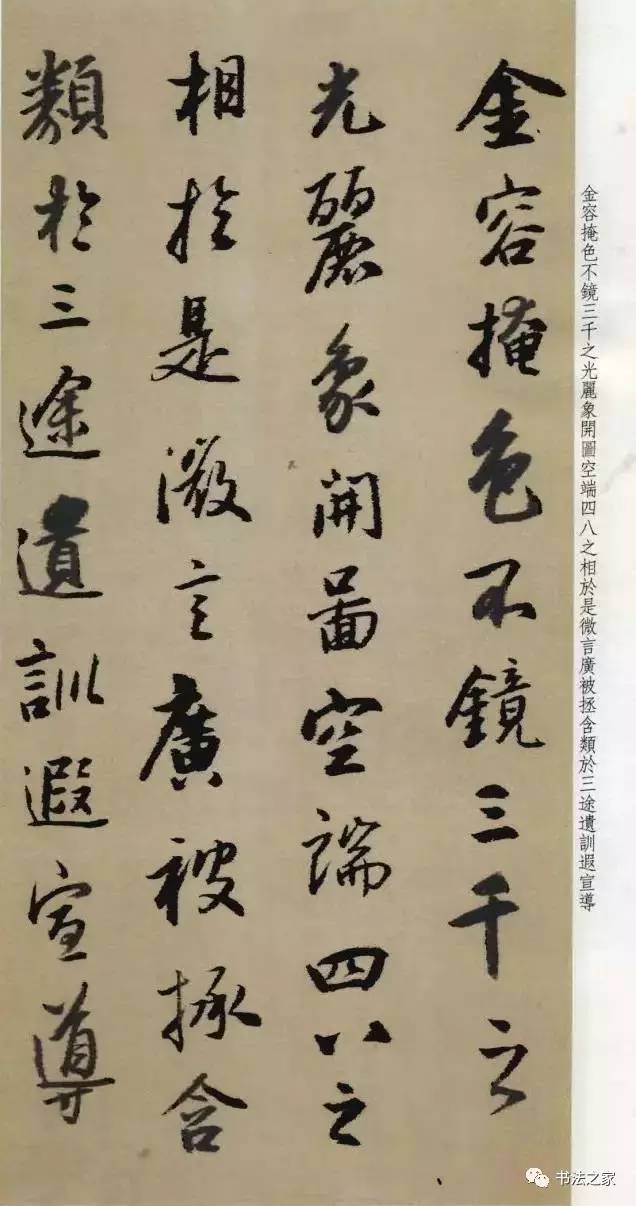 金容掩色不鏡三千之
光麗象開圖空端四八之
相於是微言廣被拯含
類於三途遺訓遐宣導
金容掩色不鏡三千之光麗象開圖空端四八之相於是微言廣被拯含類於三途遺訓遐宣導
书法之家